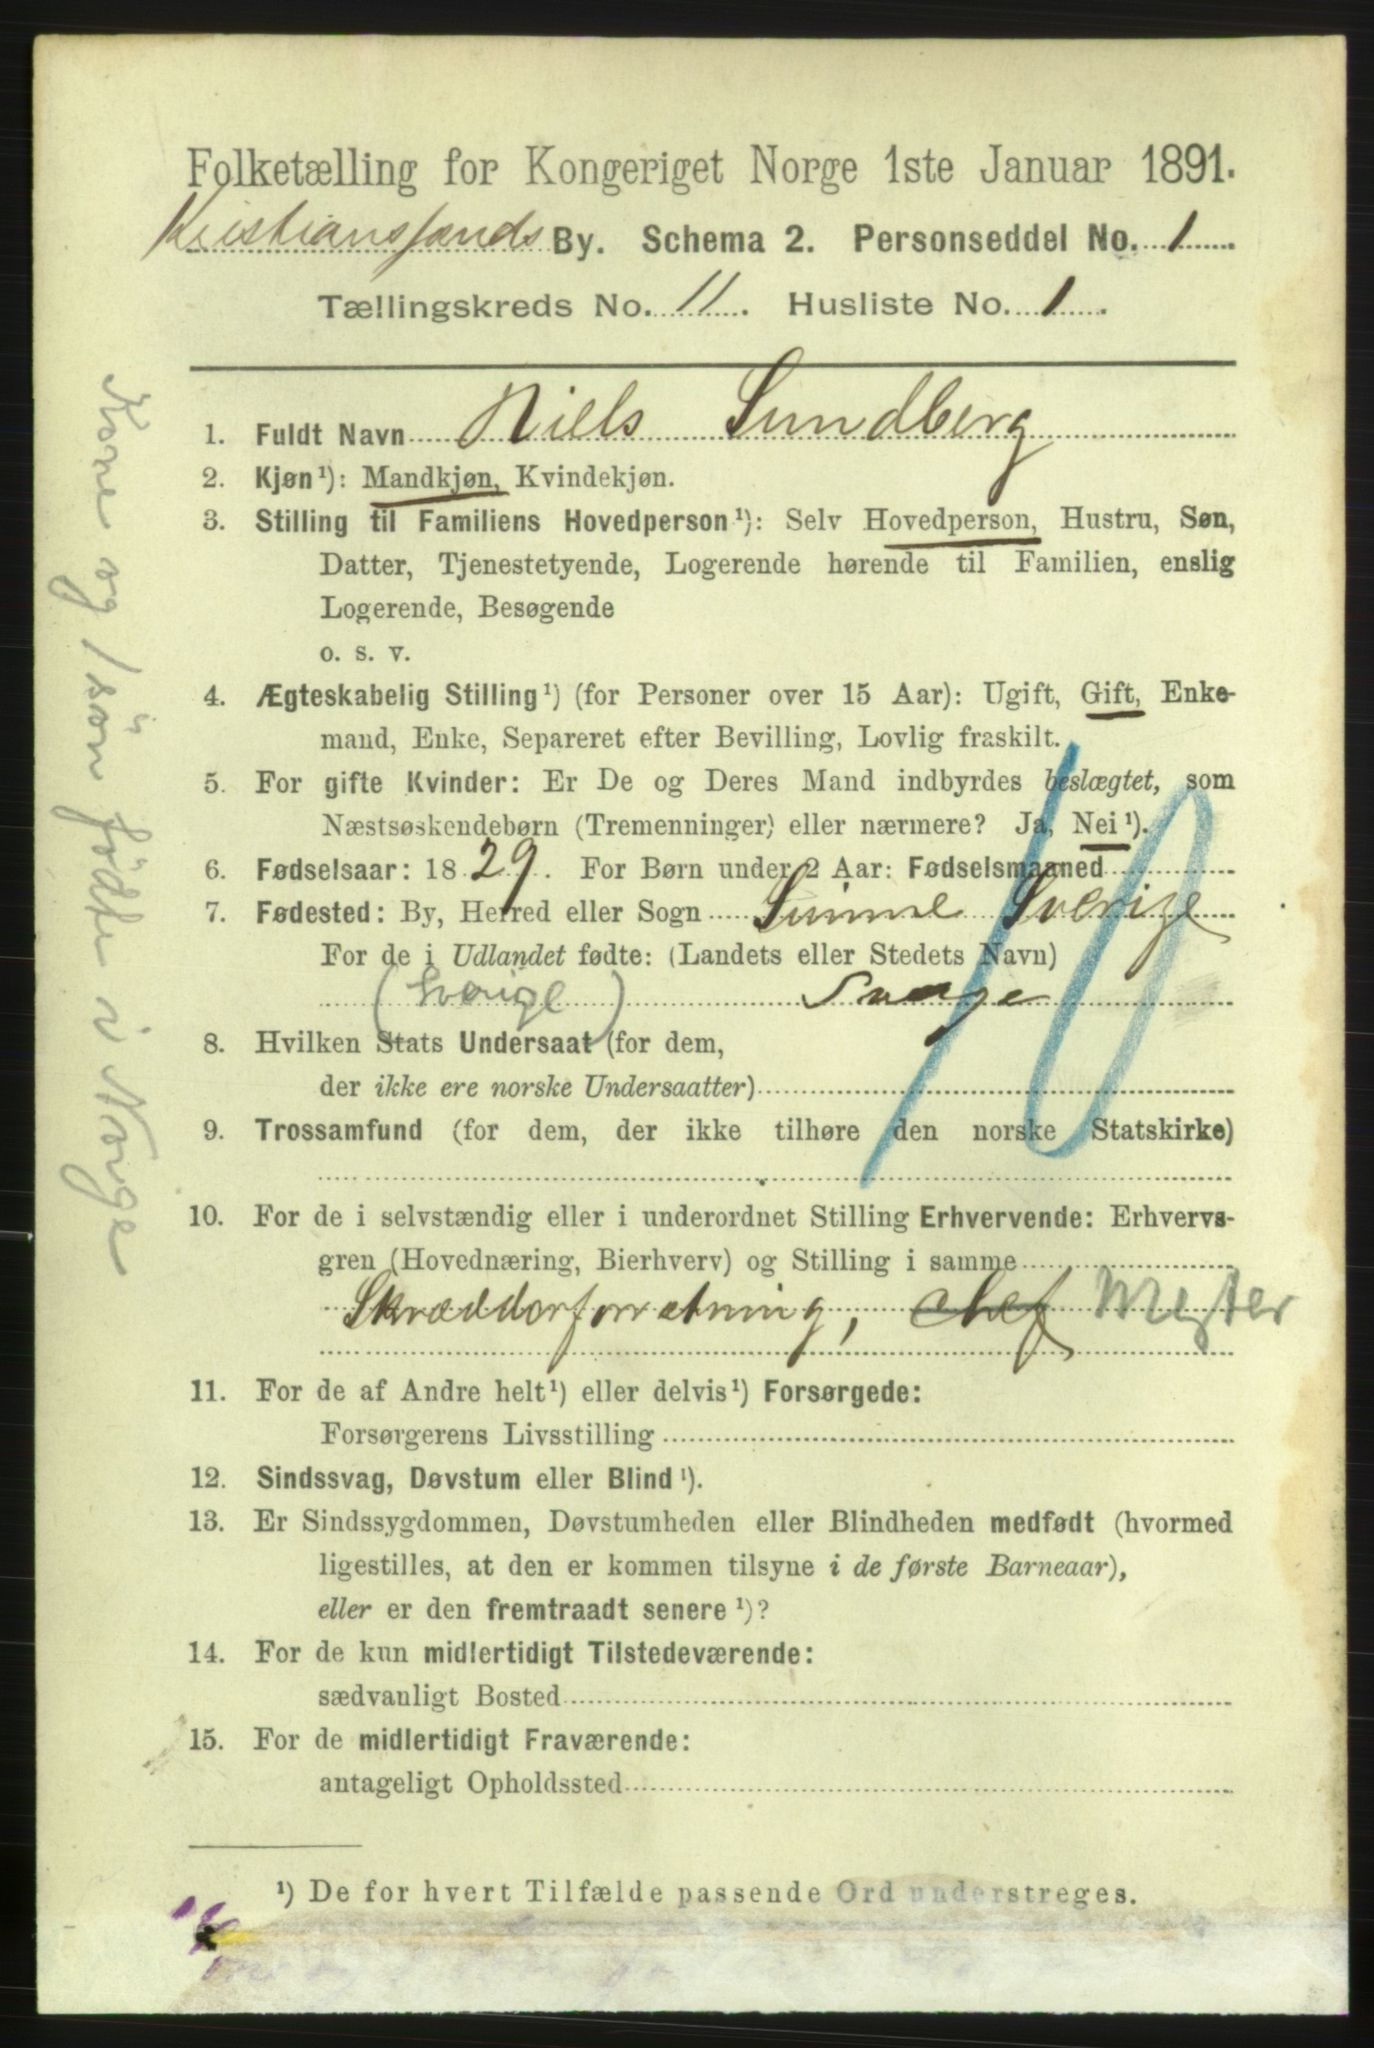 Folketælling for Kongeriget Norge 1ste Januar 1891.
Kristianssands By. Schema 2. Personseddel No. 1
Tællingskreds No. 11. Husliste No. 1.
1. Fuldt Navn Niels Sundberg
2. Kjøn¹): Mandkjøn, Kvindekjøn.
3. Stilling til Familiens Hovedperson¹): Selv Hovedperson, Hustru, Søn,
Datter, Tjenestetyende, Logerende hørende til Familien, enslig
Logerende, Besøgende
o. s. v.
4. Ægteskabelig Stilling¹) (for Personer over 15 Aar): Ugift, Gift, Enke-
mand, Enke, Separeret efter Bevilling, Lovlig fraskilt.
5. For gifte Kvinder: Er De og Deres Mand indbyrdes beslægtet, som
Næstsøskendebørn (Tremenninger) eller nærmere? Ja, Nei¹).
6. Fødselsaar: 1829. For Børn under 2 Aar: Fødselsmaaned
7. Fødested: By, Herred eller Sogn Sunne Sverige
For de i Udlandet fødte: (Landets eller Stedets Navn)
(Sverige)
8. Hvilken Stats Undersaat (for dem,
der ikke ere norske Undersaatter)
9. Trossamfund (for dem, der ikke tilhøre den norske Statskirke)
10. For de i selvstændig eller i underordnet Stilling Erhvervende: Erhvervs-
gren (Hovednæring, Bierhverv) og Stilling i samme
Skrædderforretning, chef Mester
11. For de af Andre helt¹) eller delvis¹) Forsørgede:
Forsørgerens Livsstilling
12. Sindssvag, Døvstum eller Blind¹).
13. Er Sindssygdommen, Døvstumheden eller Blindheden medfødt (hvormed
ligestilles, at den er kommen tilsyne i de første Barneaar),
eller er den fremtraadt senere¹)?
14. For de kun midlertidigt Tilstedeværende:
sædvanligt Bosted
15. For de midlertidigt Fraværende:
antageligt Opholdssted
¹) De for hvert Tilfælde passende Ord understreges.
10
Kone og 1 søn födte i Norge